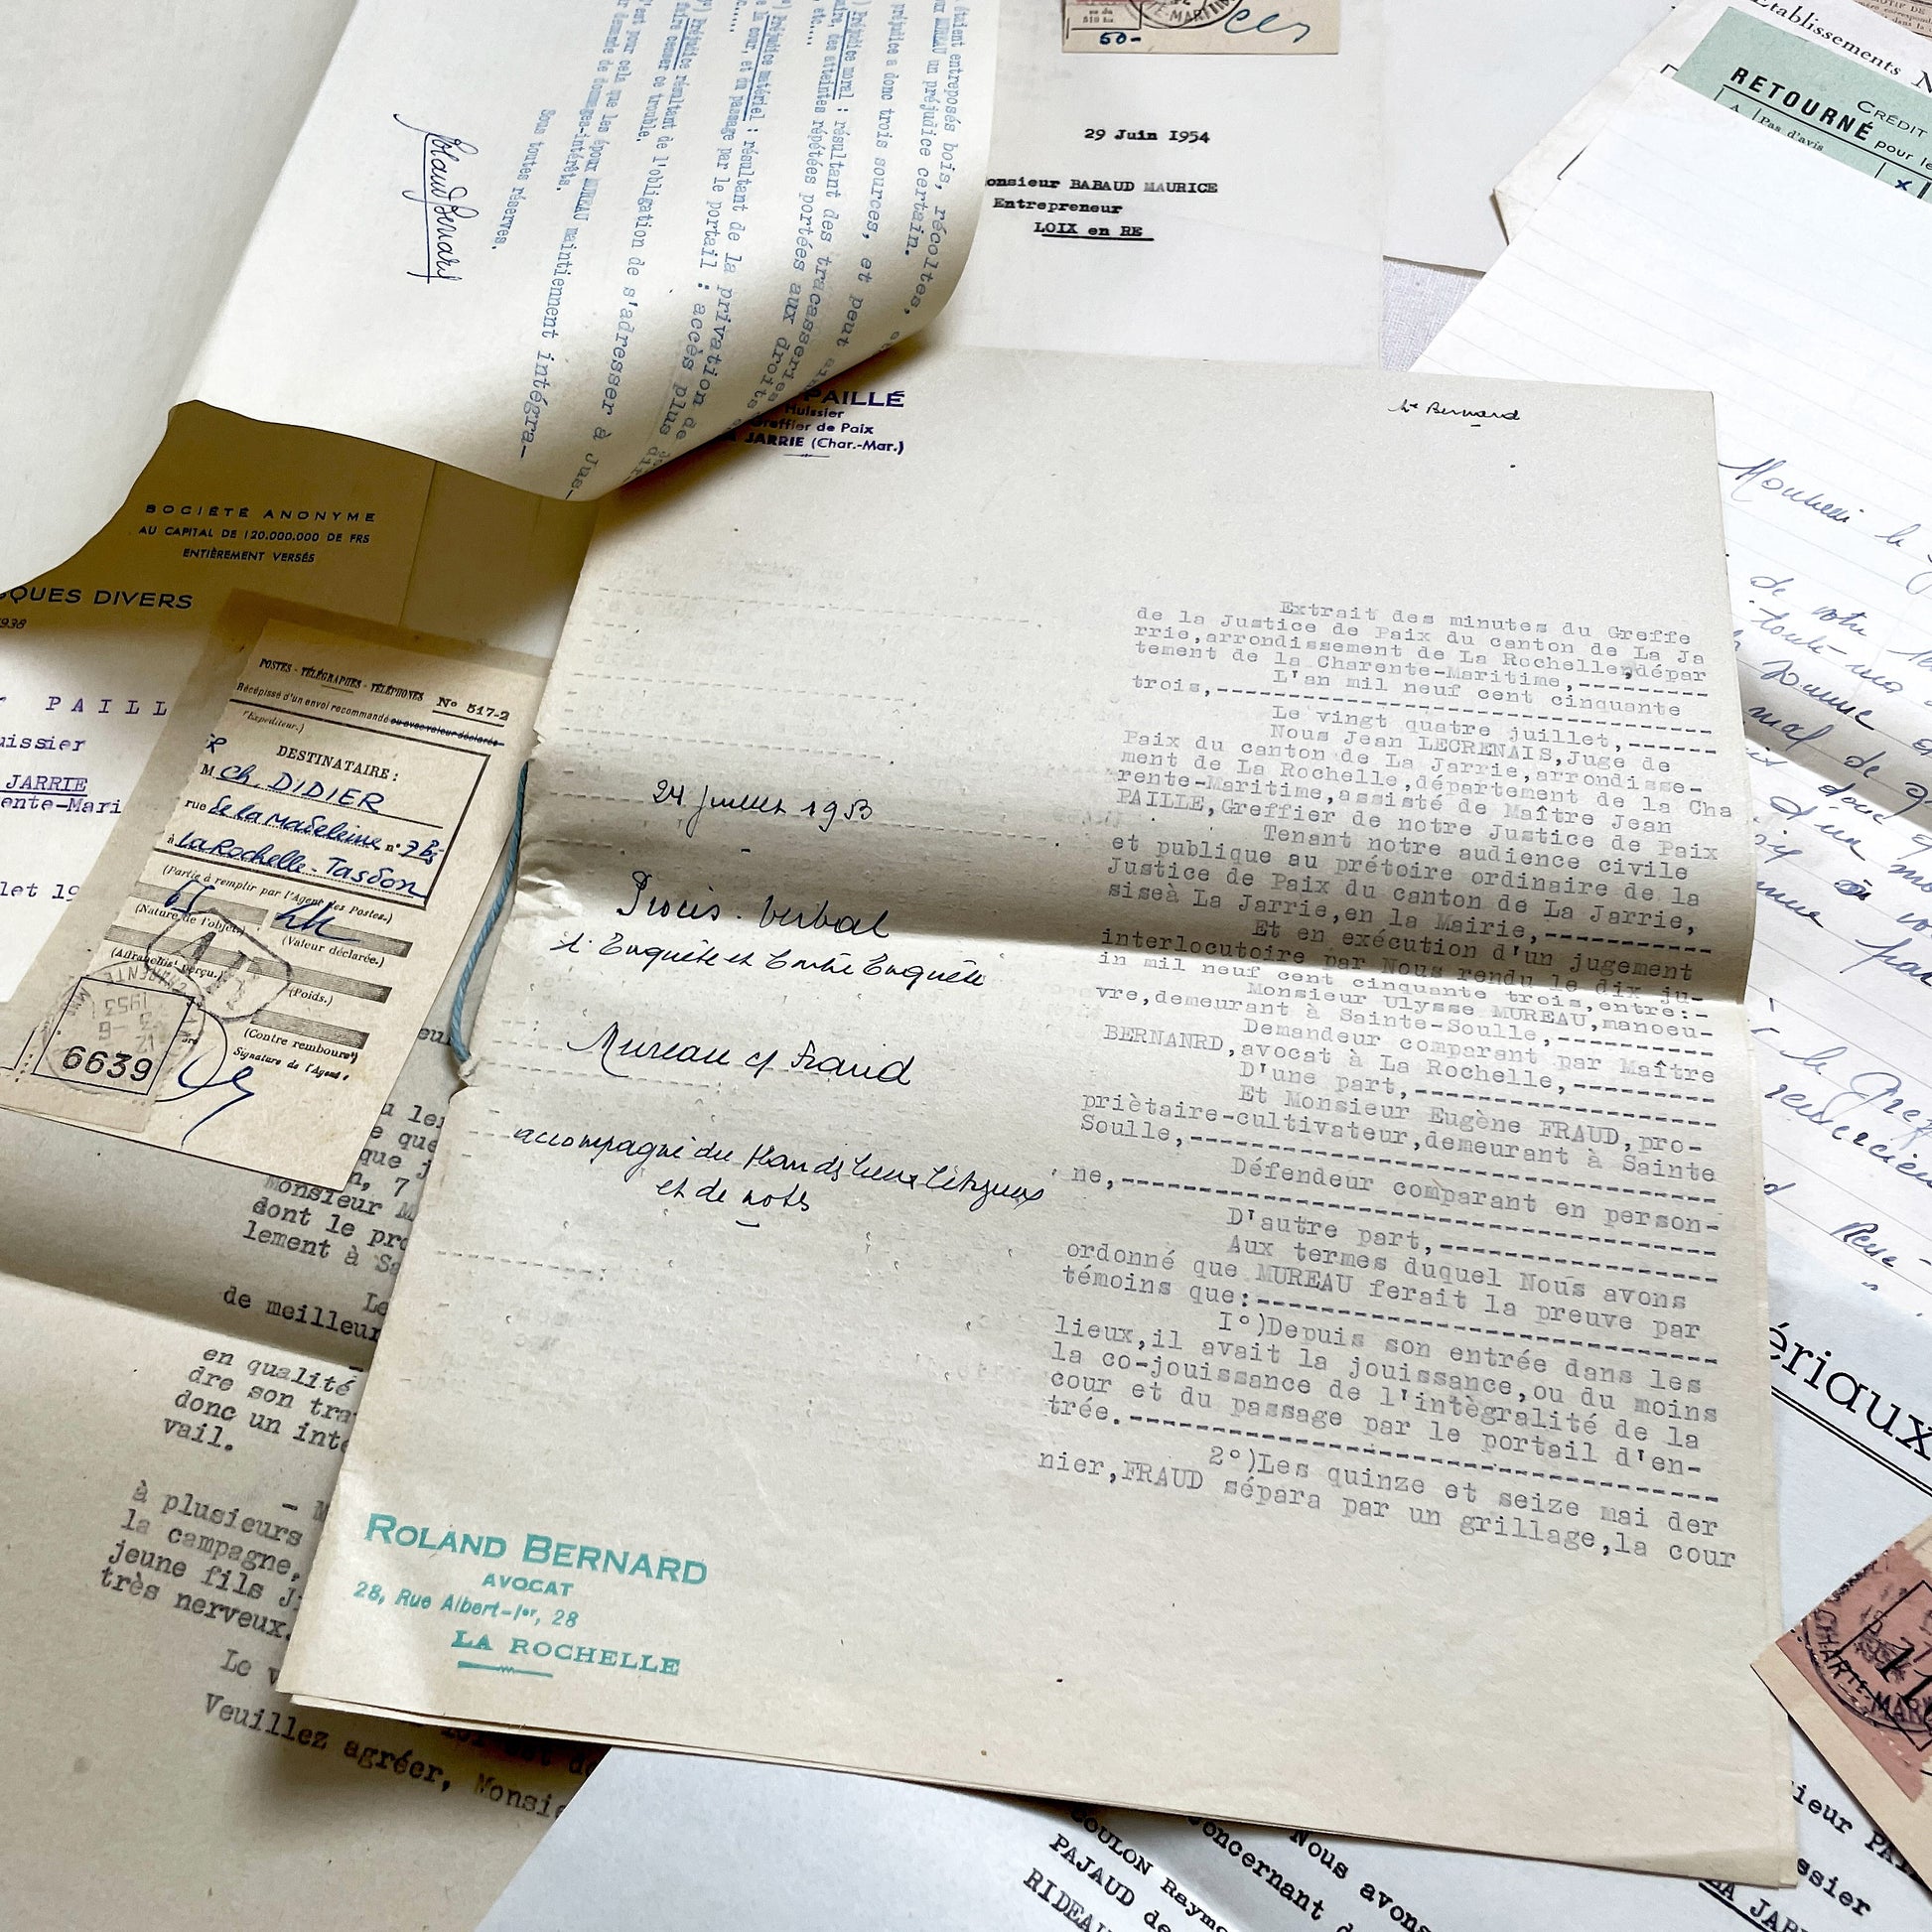 étaient entreposés bois, récoltes,
un préjudice certain.
préjudice a donc trois sources, et peut
Préjudice moral : résultant des tracasseries
des atteintes répétées portées aux droits
etc....
Préjudice matériel : résultant de la privation de
la cour, et du passage par le portail : accès plus
Préjudice résultant de l'obligation de s'adresser à Jus-
faire cesser ce trouble.
est pour cela que les époux MUREAU maintiennent intégra-
demande de dommages-intérêts.
Sous toutes réserves.
Roland Bernard
50-
29 Juin 1954
onsieur BABAUD MAURICE
Entrepreneur
LOIX en RE
Etablissements N
CRÉDIT
RETOURNÉ pour le
Pas d'avis
x
SOCIÉTÉ ANONYME
AU CAPITAL DE 120.000.000 DE FRS
ENTIÈREMENT VERSÉS
QUES DIVERS
1938
PAILL
uissier
JARRIE
ente-Mari
let 19
POSTES - TÉLÉGRAPHES - TÉLÉPHONES
N° 517-2
Récépissé d'un envoi recommandé ou avec valeur déclarée
(Expéditeur.)
DESTINATAIRE :
M Ch. DIDIER
rue de la Madeleine n° 7 Bis
à La Rochelle-Tasdon
(Partie à remplir par l'Agent des Postes.)
(Nature de l'objet.)
(Valeur déclarée.)
(Affranchist perçu.)
(Poids.)
(Contre rembourst)
Signature de l'Agent :
6639
PAILLÉ
Huissier
Greffier de Paix
JARRIE (Char.-Mar.)
Me Bernard
24 juillet 1953
Procès-verbal
d'Enquête et Contre Enquête
Mureau c/ Fraud
accompagné du Plan des Lieux litigieux
et de nots
ROLAND BERNARD
AVOCAT
28, Rue Albert-Ier, 28
LA ROCHELLE
Extrait des minutes du Greffe
de la Justice de Paix du canton de La Ja
rrie,arrondissement de La Rochelle,dépar
tement de la Charente-Maritime,---------
L'an mil neuf cent cinquante
trois,-----------------------------------
Le vingt quatre juillet,------
Nous Jean LECRENAIS,Juge de
Paix du canton de La Jarrie,arrondisse-
ment de La Rochelle,département de la Cha
rente-Maritime,assisté de Maître Jean
PAILLE,Greffier de notre Justice de Paix
Tenant notre audience civile
et publique au prétoire ordinaire de la
Justice de Paix du canton de La Jarrie,
siseà La Jarrie,en la Mairie,-----------
Et en exécution d'un jugement
interlocutoire par Nous rendu le dix ju-
in mil neuf cent cinquante trois,entre:-
Monsieur Ulysse MUREAU,manoeu-
vre,demeurant à Sainte-Soulle,----------
Demandeur comparant par Maître
BERNANRD,avocat à La Rochelle,--------
D'une part,-------------------
Et Monsieur Eugène FRAUD,pro-
priètaire-cultivateur,demeurant à Sainte
Soulle,---------------------------------
Défendeur comparant en person-
ne,-------------------------------------
D'autre part,-----------------
Aux termes duquel Nous avons
ordonné que MUREAU ferait la preuve par
témoins que:----------------------------
I°)Depuis son entrée dans les
lieux,il avait la jouissance,ou du moins
la co-jouissance de l'intègralité de la
cour et du passage par le portail d'en-
trée.-----------------------------------
2°)Les quinze et seize mai der
nier,FRAUD sépara par un grillage,la cour
e que
que j
n, 7
Monsieur M
dont le pro
lement à Sa
Le
de meilleur
en qualité
dre son tra
donc un inté
vail.
- M
à plusieurs
la campagne,
jeune fils J
très nerveux.
Le v
Veuillez agréer, Monsie
Monsieur le
de votre
le Gref
Rue
ériaux
Nous avons
concernant
COULON Raymo
PAJAUD de
RIDEAU
ieur PAI
ssier
LA JAR